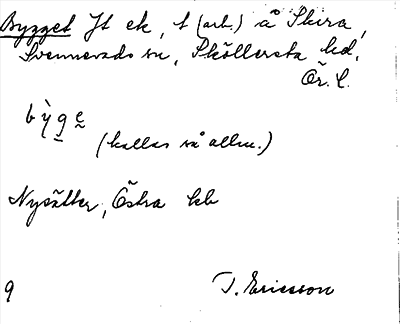 Bygget Jt ek, t (arb.) å Skira,
Svennevads sn, Sköllersta hd.
Ör. l.
bỳg̱e̮
(kallas så allm.)
Nysätter, Östra kb
9
T. Ericsson